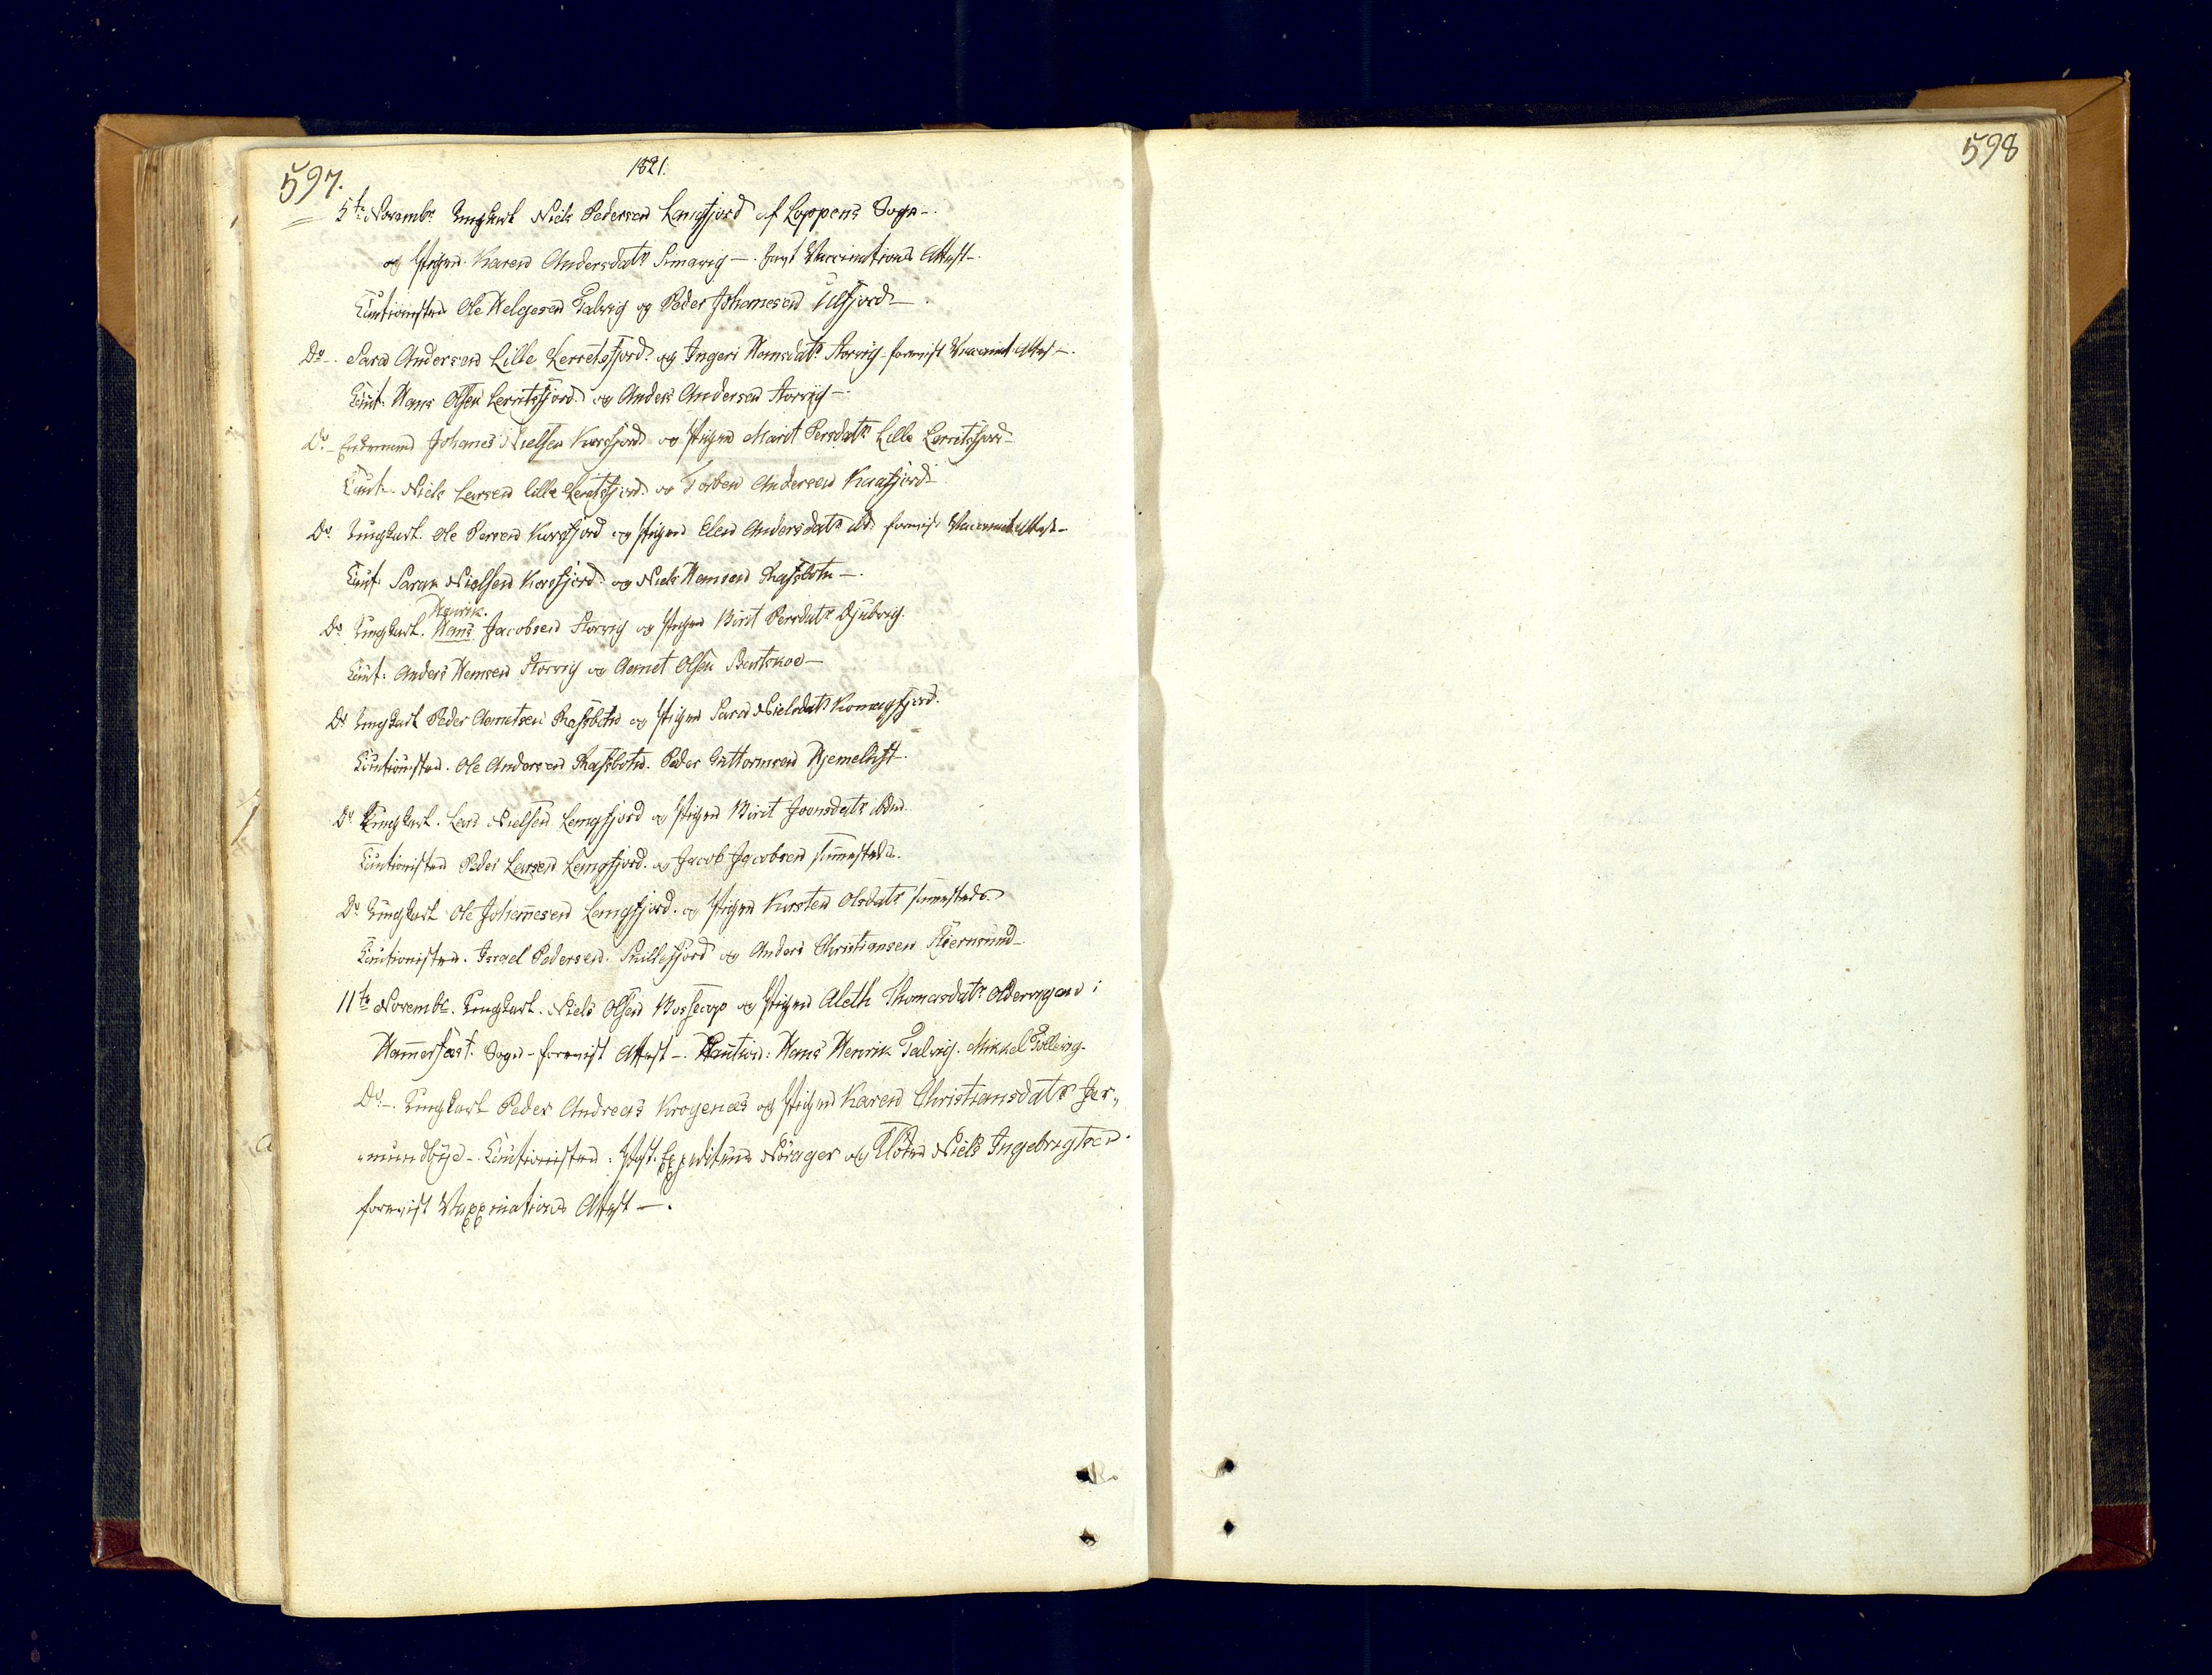 597.
1821.
5te Novembr Ungkarl Niels Pedersen Langfjord af Loppens Sogn -
og Pigen Karen Andersdatr Smavig - havt Vaccinations Attest -
Cautionister Ole Helgesen Talvig og Peder Johannesen Ulfjord -
Do - Sara Andersen Lille Lerretsfjord og Ingeri Hansdatr Storvig - forevist Vaccinat Attest -
Caut: Hans Olsen Lerretsfjord og Anders Andersen Storvig -
Do - Enkemand Johanes Nielsen Korsfjord og Pigen Marit Persdatr Lille Lerretsfjord -
Caut - Niels Larsen lille Leretsfjord og Torben Andersen Kaafjord -
Do Ungkarl Ole Persen Korsfjord og Pigen Elen Andersdatr ibd: forevist Vaccinat Attest -
Caut: Sara Nielsen Korsfjord og Niels Hansen Rafsbotn -
Henrik.
Do Ungkarl. Hans Jacobsen Storvig og Pigen Birit Persdatr Djubvig.
Caut: Anders Hansen Storvig og Asmet Olsen
Do Ungkarl Peder Asmetsen Rafsbotn og Pigen Sara Nielsdatr Komagfjord.
Cautionister. Ole Andersen Rafsbotn. Peder Guttormsen Hjemeluft -
Do Ungkarl. Lars Nielsen Langfjord og Pigen Birit Joonsdatr ibdm
Cautionister Peder Larsen Langfjord og Jacob Jacobsen sammesteds.
Do Ungkarl Ole Johannesen Langfjord og Pigen Kirsten Olsdatr sammesteds
Cautionister. Israel Pedersen Snillefjord og Anders Christiansen Stiernsund -
11te Novembr. Ungkarl. Niels Olsen Bossecop og Pigen Aleth Thomasdatr Oldervigen i
Hammerfæst Sogn - forevist Attest - Caution: Hans Henrik Talvig. Mikkel Tollevig -
Do - Ungkarl Peder Andreas Krogenæs og Pigen Karen Christiansdatr Jer„
„mundbye - Cautionister: Post. Expediteur Norager og Niels Ingebrigtsen
forevist Vaccinations Attest -.
598